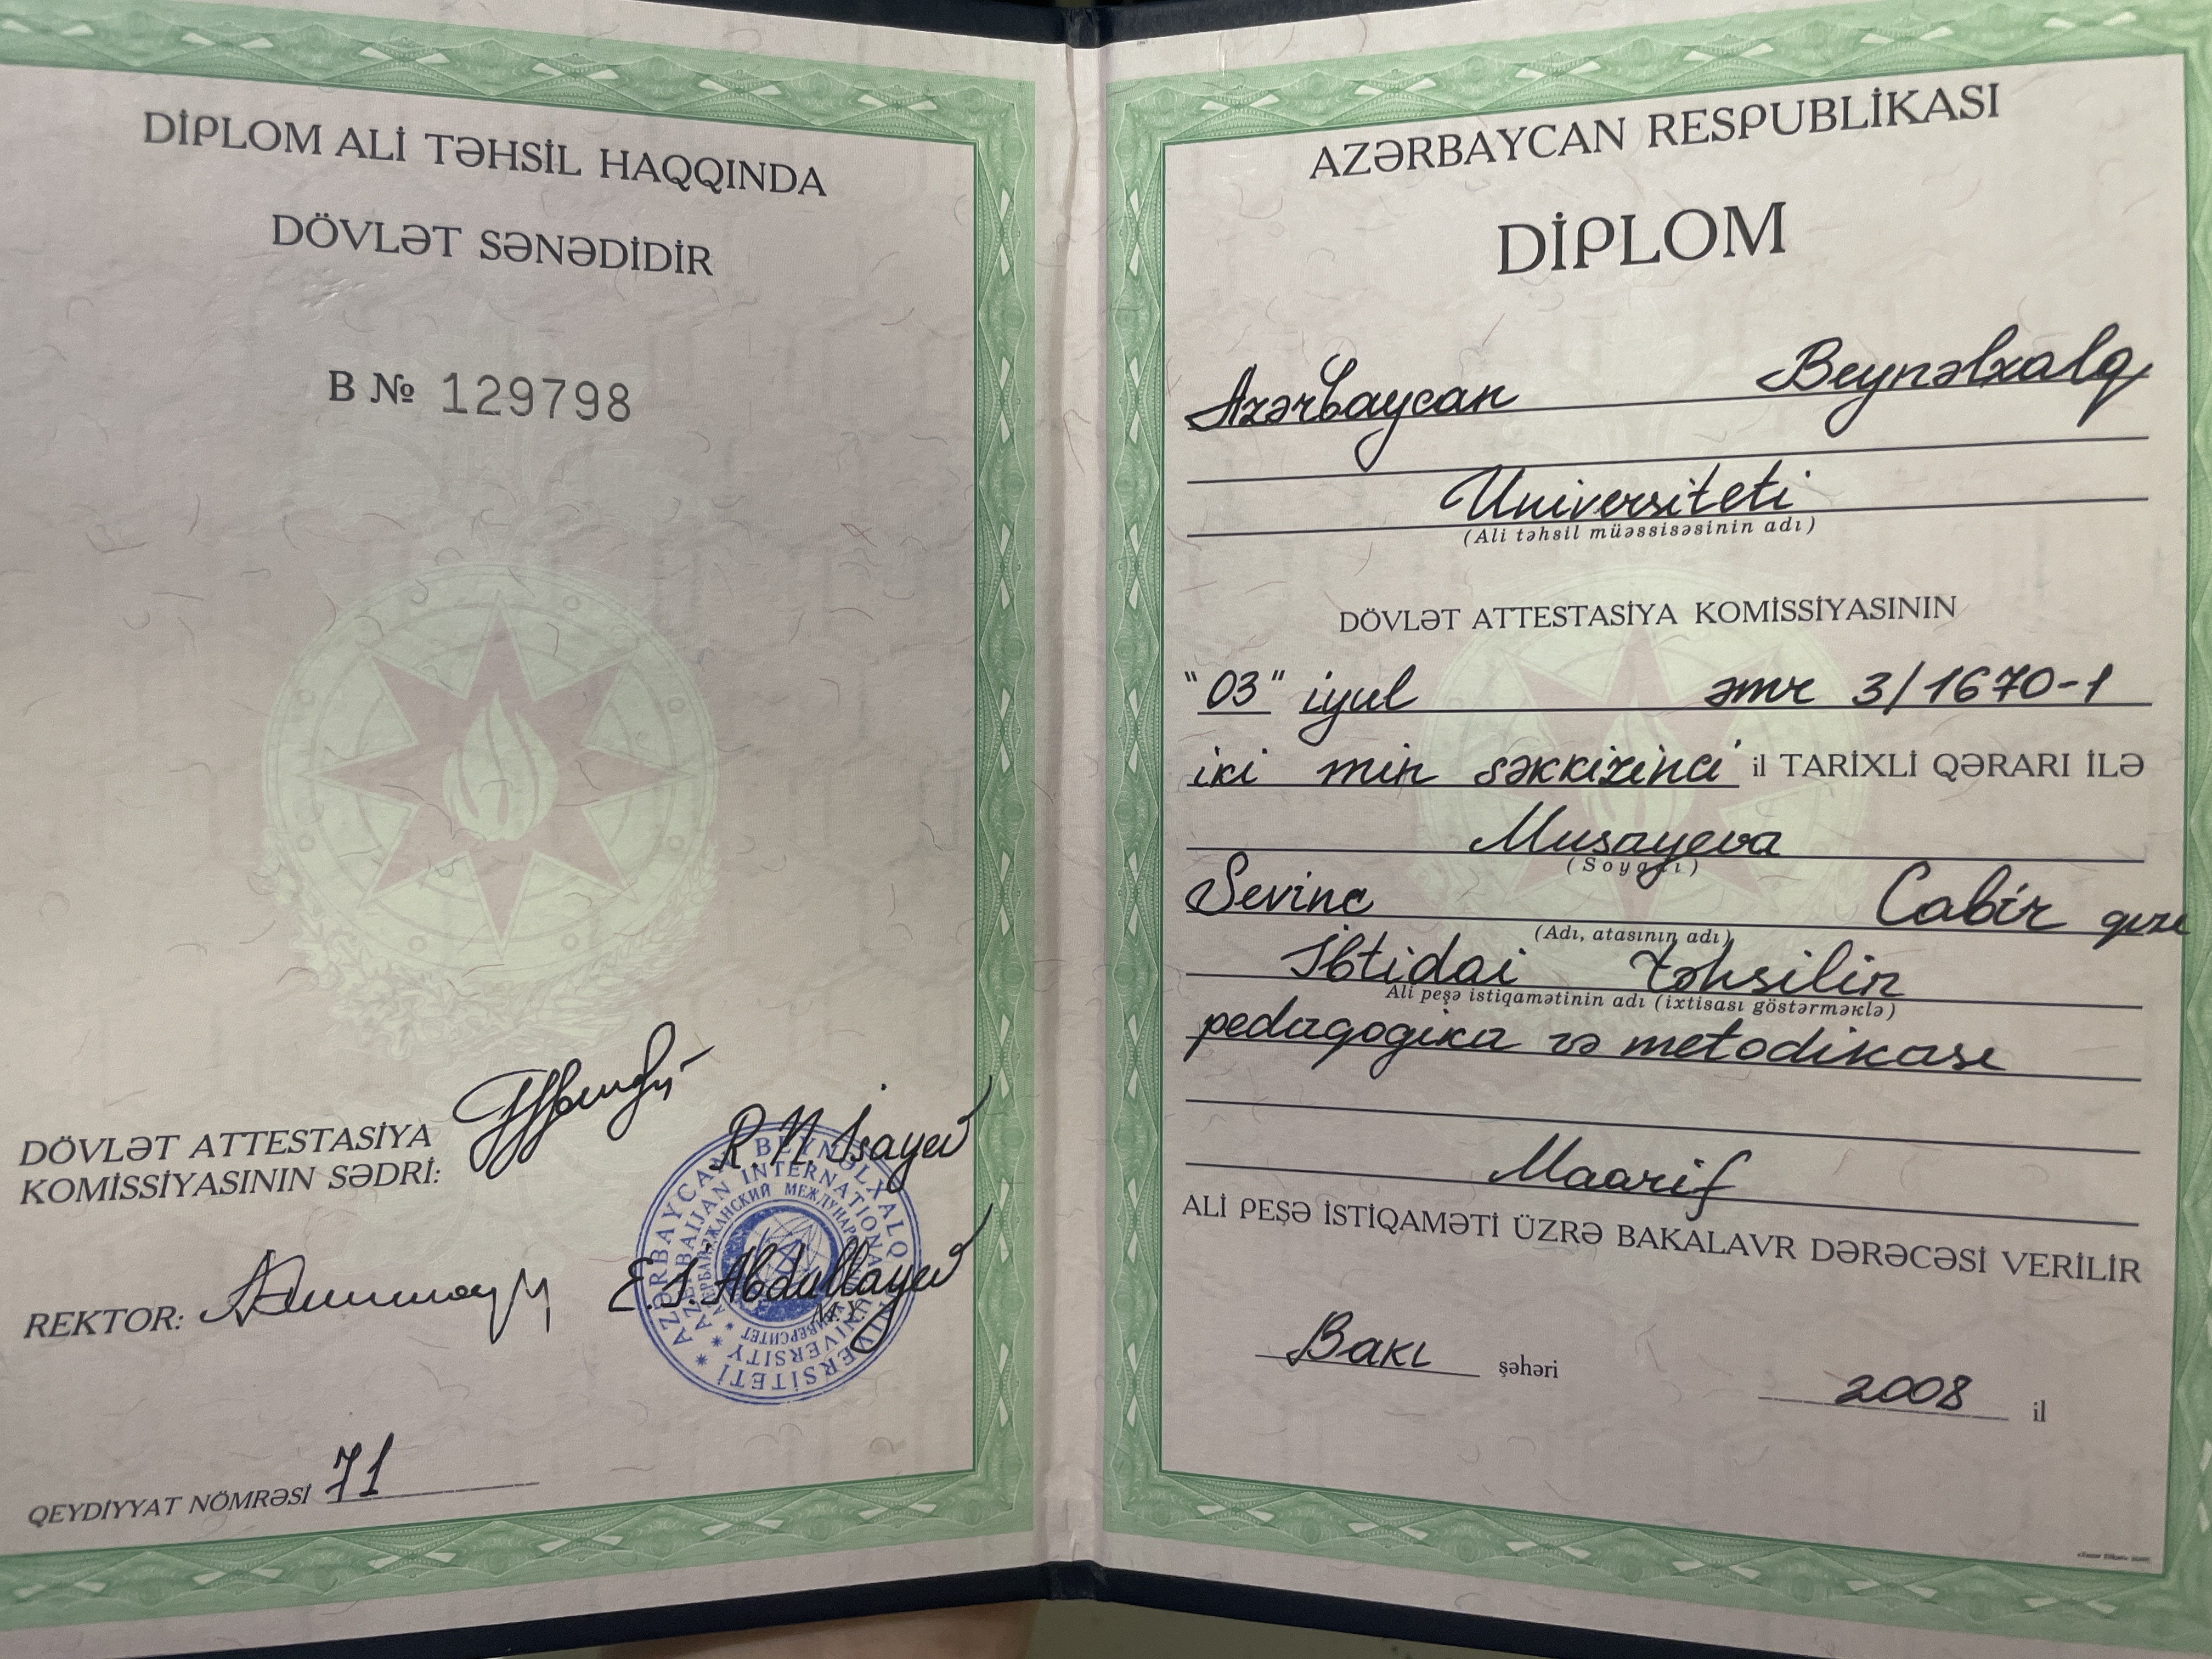 DİPLOM ALİ TƏHSİL HAQQINDA
DÖVLƏT SƏNƏDİDİR
B № 129798
DÖVLƏT ATTESTASİYA
KOMİSSİYASININ SƏDRİ:
R. N. İsayev
REKTOR:
E. İ. Abdullayev
M.Y.
AZƏRBAYCAN BEYNƏLXALQ UNİVERSİTETİ
AZERBAIJAN INTERNATIONAL UNIVERSITY
АЗЕРБАЙДЖАНСКИЙ МЕЖДУНАРОДНЫЙ УНИВЕРСИТЕТ
QEYDİYYAT NÖMRƏSİ 71
AZƏRBAYCAN RESPUBLİKASI
DİPLOM
Azərbaycan Beynəlxalq
Universiteti
(Ali təhsil müəssisəsinin adı)
DÖVLƏT ATTESTASİYA KOMİSSİYASININ
"03" iyul əmr 3/1670-1
iki min səkkizinci il TARİXLİ QƏRARI İLƏ
Musayeva
(Soyadı)
Sevinc Cabir qızı
(Adı, atasının adı)
İbtidai təhsilin
Ali peşə istiqamətinin adı (ixtisası göstərməklə)
pedaqogika və metodikası
Maarif
ALİ PEŞƏ İSTİQAMƏTİ ÜZRƏ BAKALAVR DƏRƏCƏSİ VERİLİR
Bakı şəhəri 2008 il